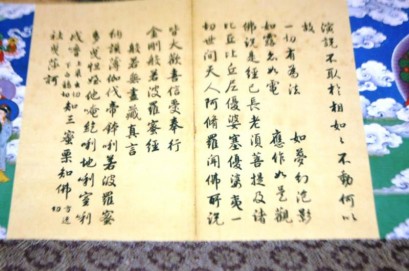 演說不取於相如如不動何以
故
一切有為法　如夢幻泡影
如露亦如電　應作如是觀
佛說是經已長老須菩提及諸
比丘比丘尼優婆塞優婆夷一
切世間天人阿脩羅聞佛所說
皆大歡喜信受奉行
金剛般若波羅蜜經
般若無盡藏真言
納謨薄伽伐帝鉢唎若波羅蜜
多曳怛姪他唵紇唎地唎室唎
戍嚕
知三蜜栗知佛
社曳莎訶